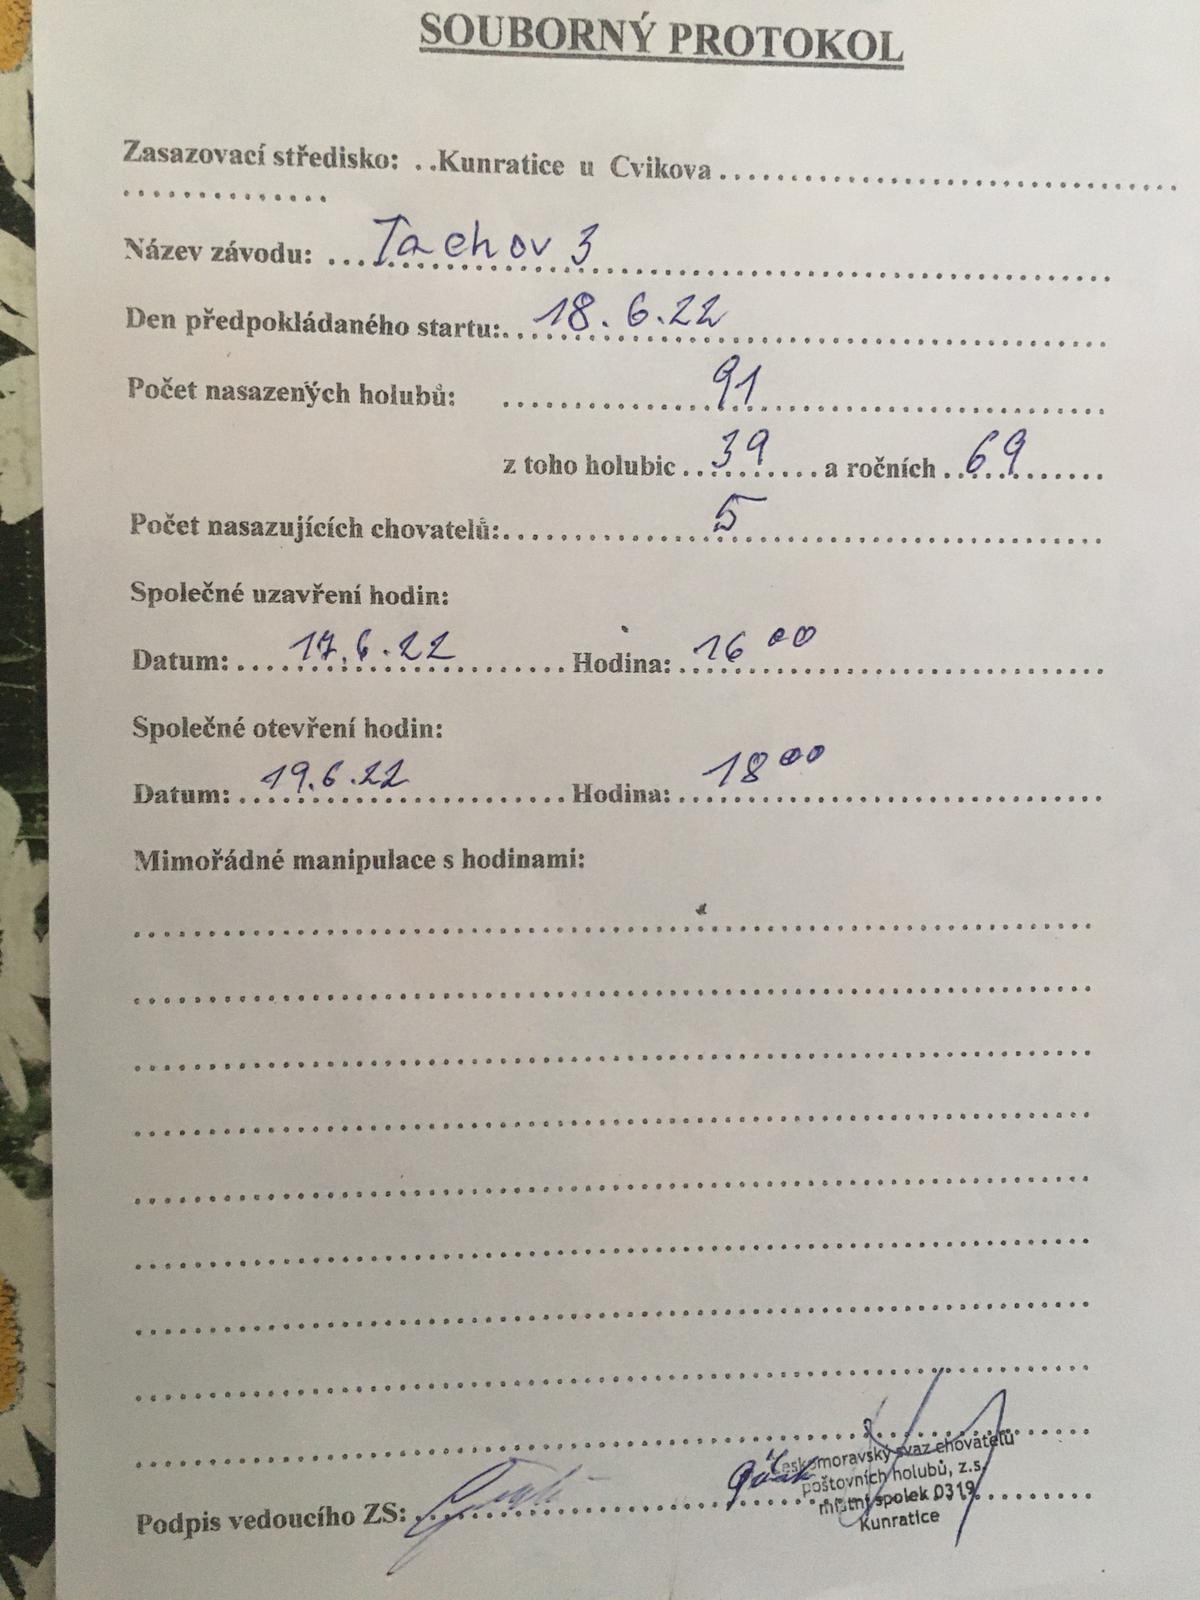 SOUBORNÝ PROTOKOL
Zasazovací středisko: ..Kunratice u Cvikova......................................
..............
Název závodu: ...Tachov 3......................................
Den předpokládaného startu:...18.6.22..............................
Počet nasazených holubů: ..............91........................
z toho holubic ..39....... a ročních ..69.......
Počet nasazujících chovatelů:..............5........................
Společné uzavření hodin:
Datum:....17.6.22........ Hodina:..16 00....................
Společné otevření hodin:
Datum:....19.6.22........ Hodina:..18 00....................
Mimořádné manipulace s hodinami:
Českomoravský svaz chovatelů
poštovních holubů, z.s.
místní spolek 0319
Kunratice
Podpis vedoucího ZS:......................................